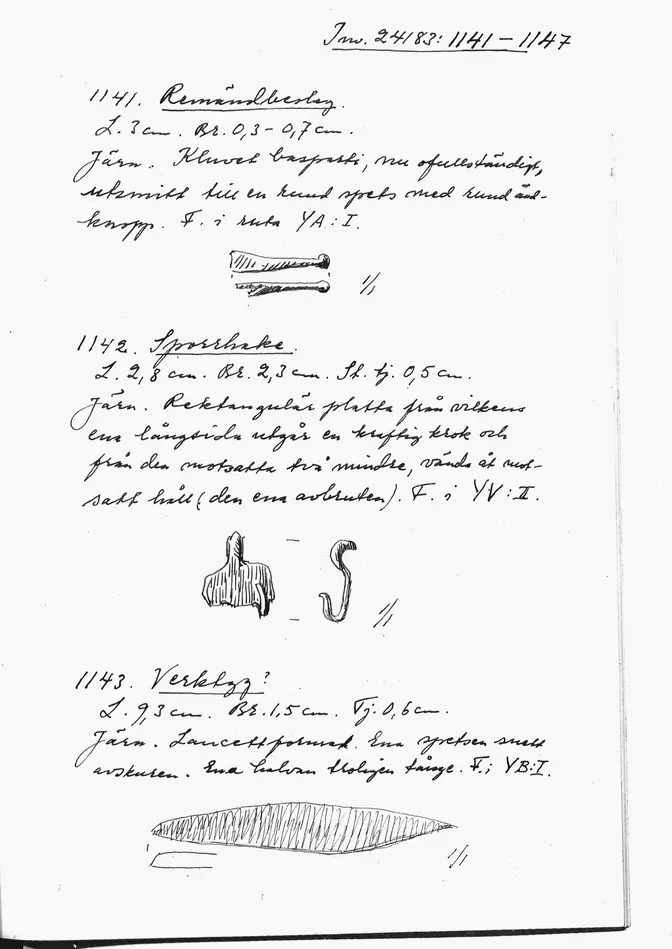 Inv. 24183: 1141 – 1147
1141. Remändbeslag.
L. 3 cm. Br. 0,3 – 0,7 cm.
Järn. Kluvet basparti, nu ofullständigt,
utsmitt till en rund spets med rund änd-
knopp. F. i ruta YA:I.
1/1
1142. Sporrhake.
L. 2,8 cm. Br. 2,3 cm. St. tj. 0,5 cm.
Järn. Rektangulär platta från vilkens
ena långsida utgår en kraftig krok och
från den motsatta två mindre, vända åt mot-
satt håll (den ena avbruten). F. i YV:II.
1/1
1143. Verktyg?
L. 9,3 cm. Br. 1,5 cm. Tj. 0,6 cm.
Järn. Lancettformad. Ena spetsen snett
avskuren. Ena halvan troligen tånge. F. i YB:I.
1/1